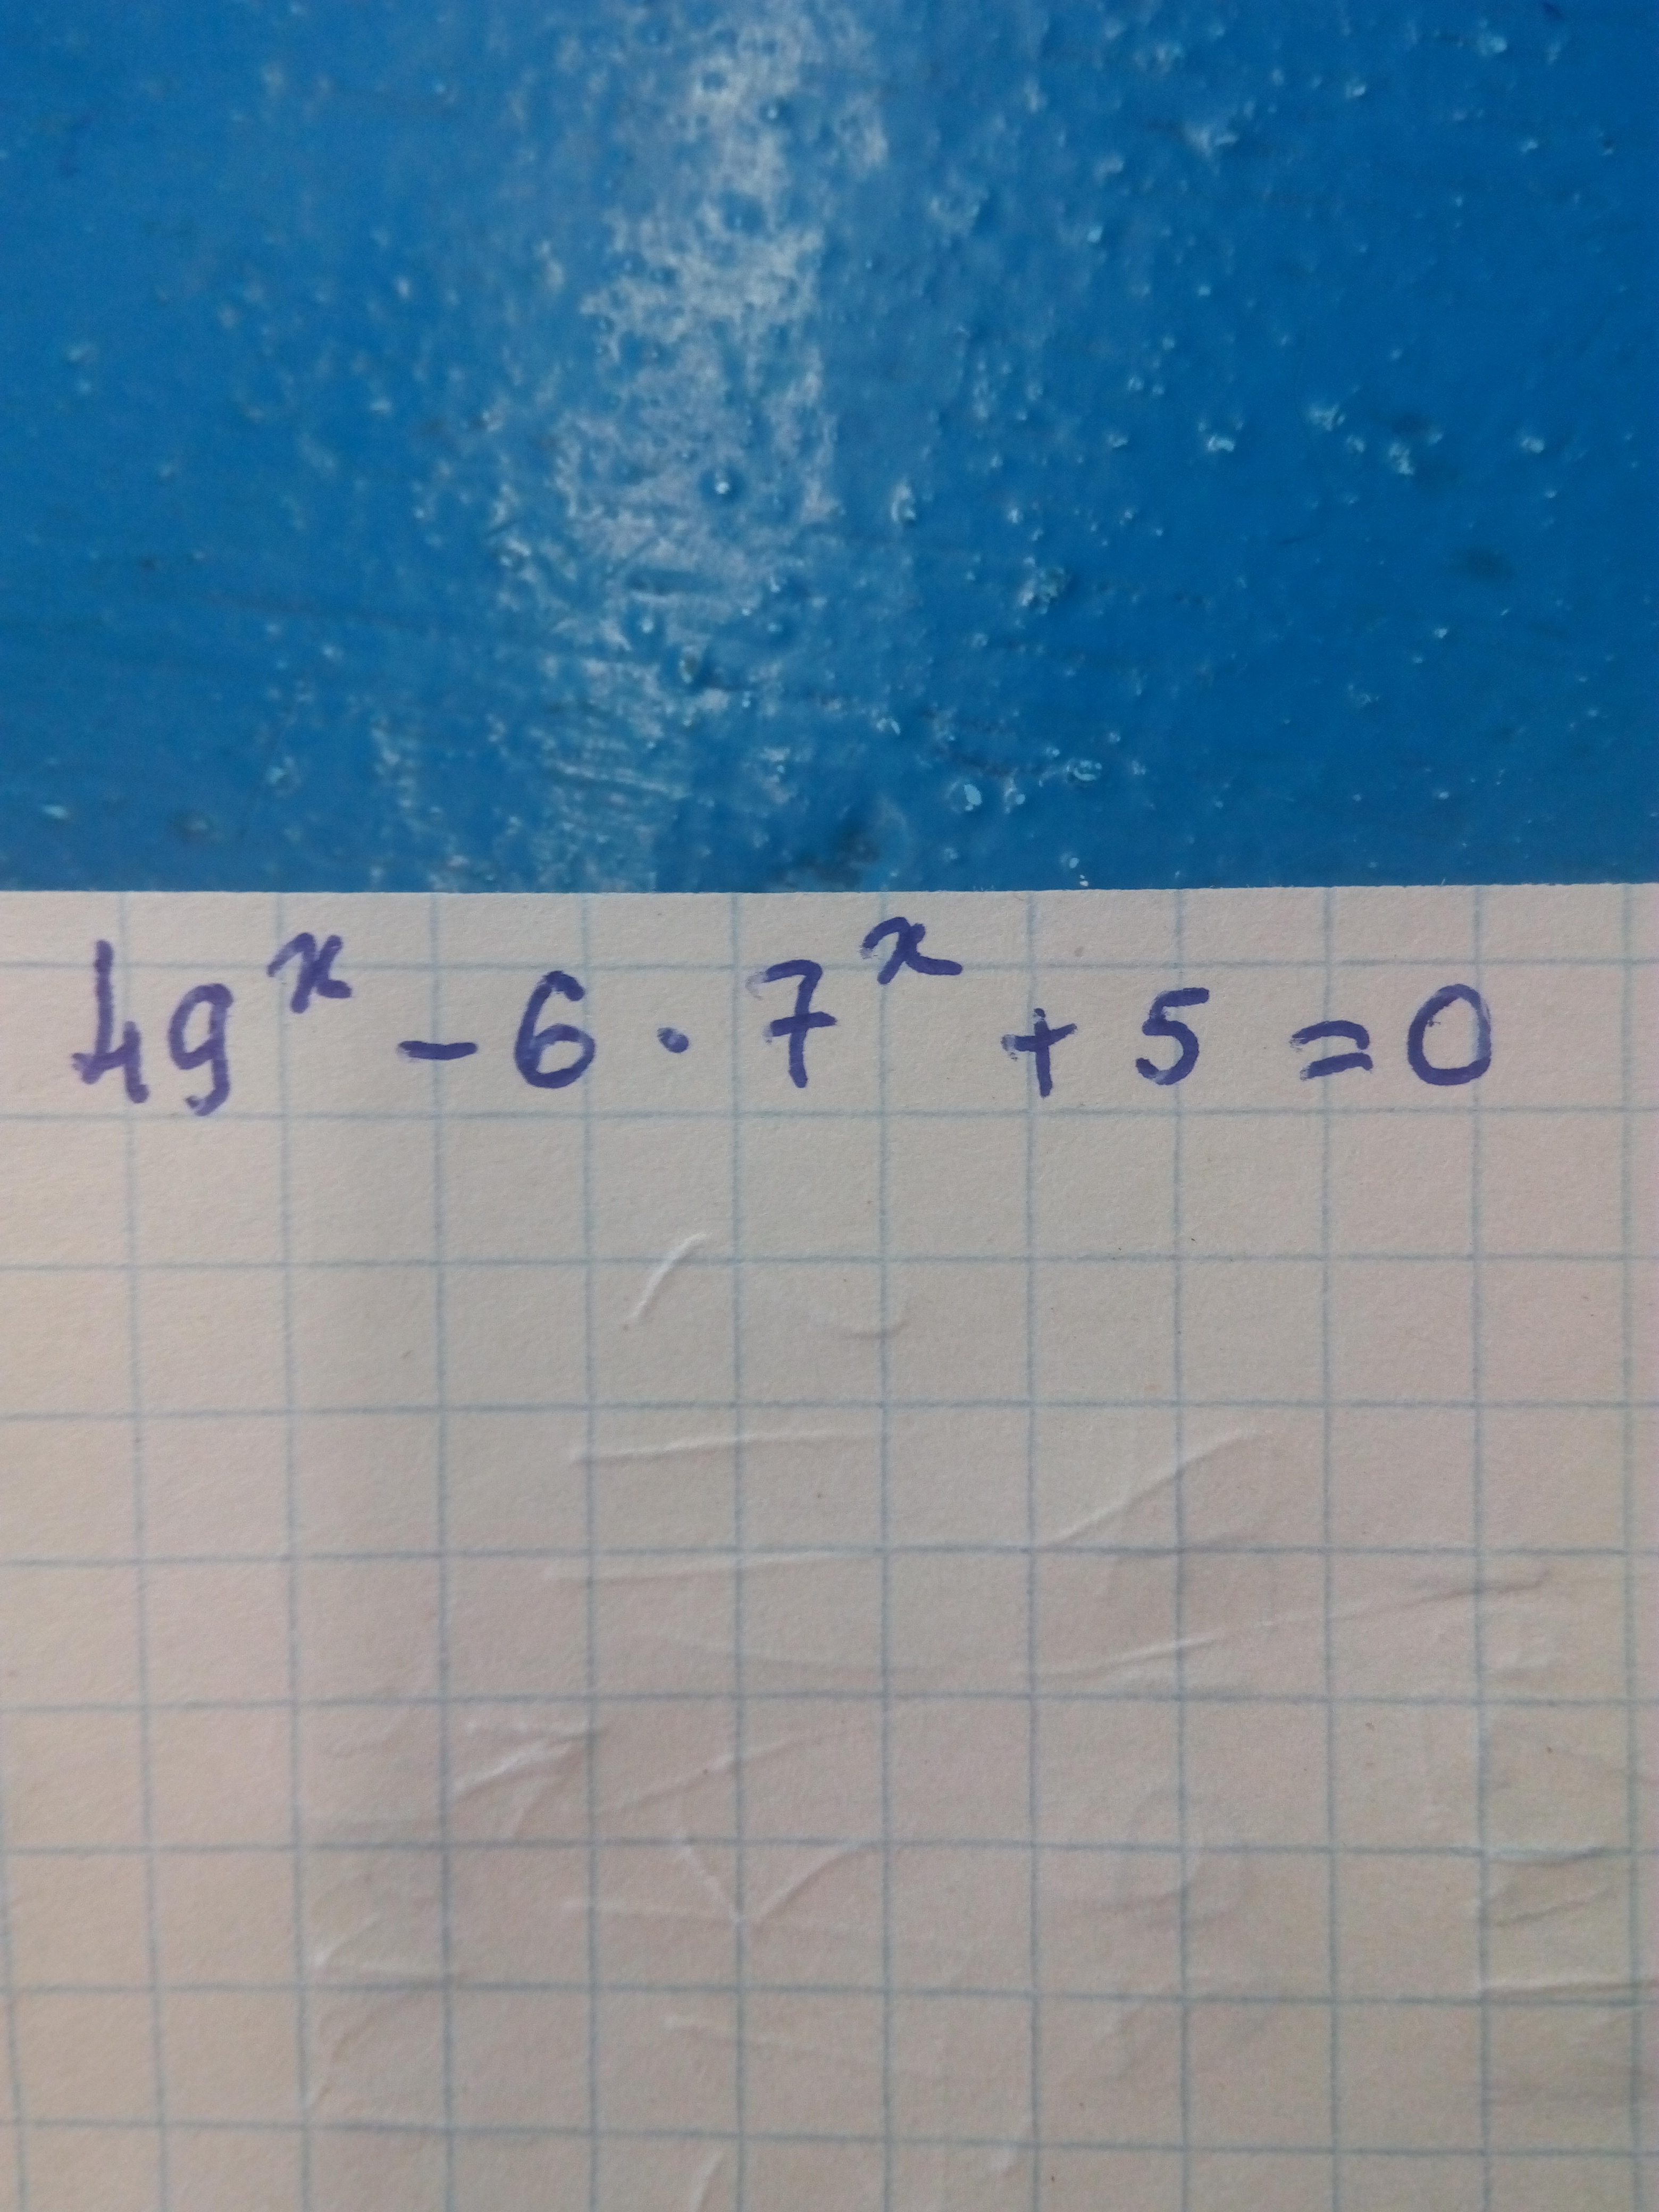 49^x - 6 · 7^x + 5 = 0